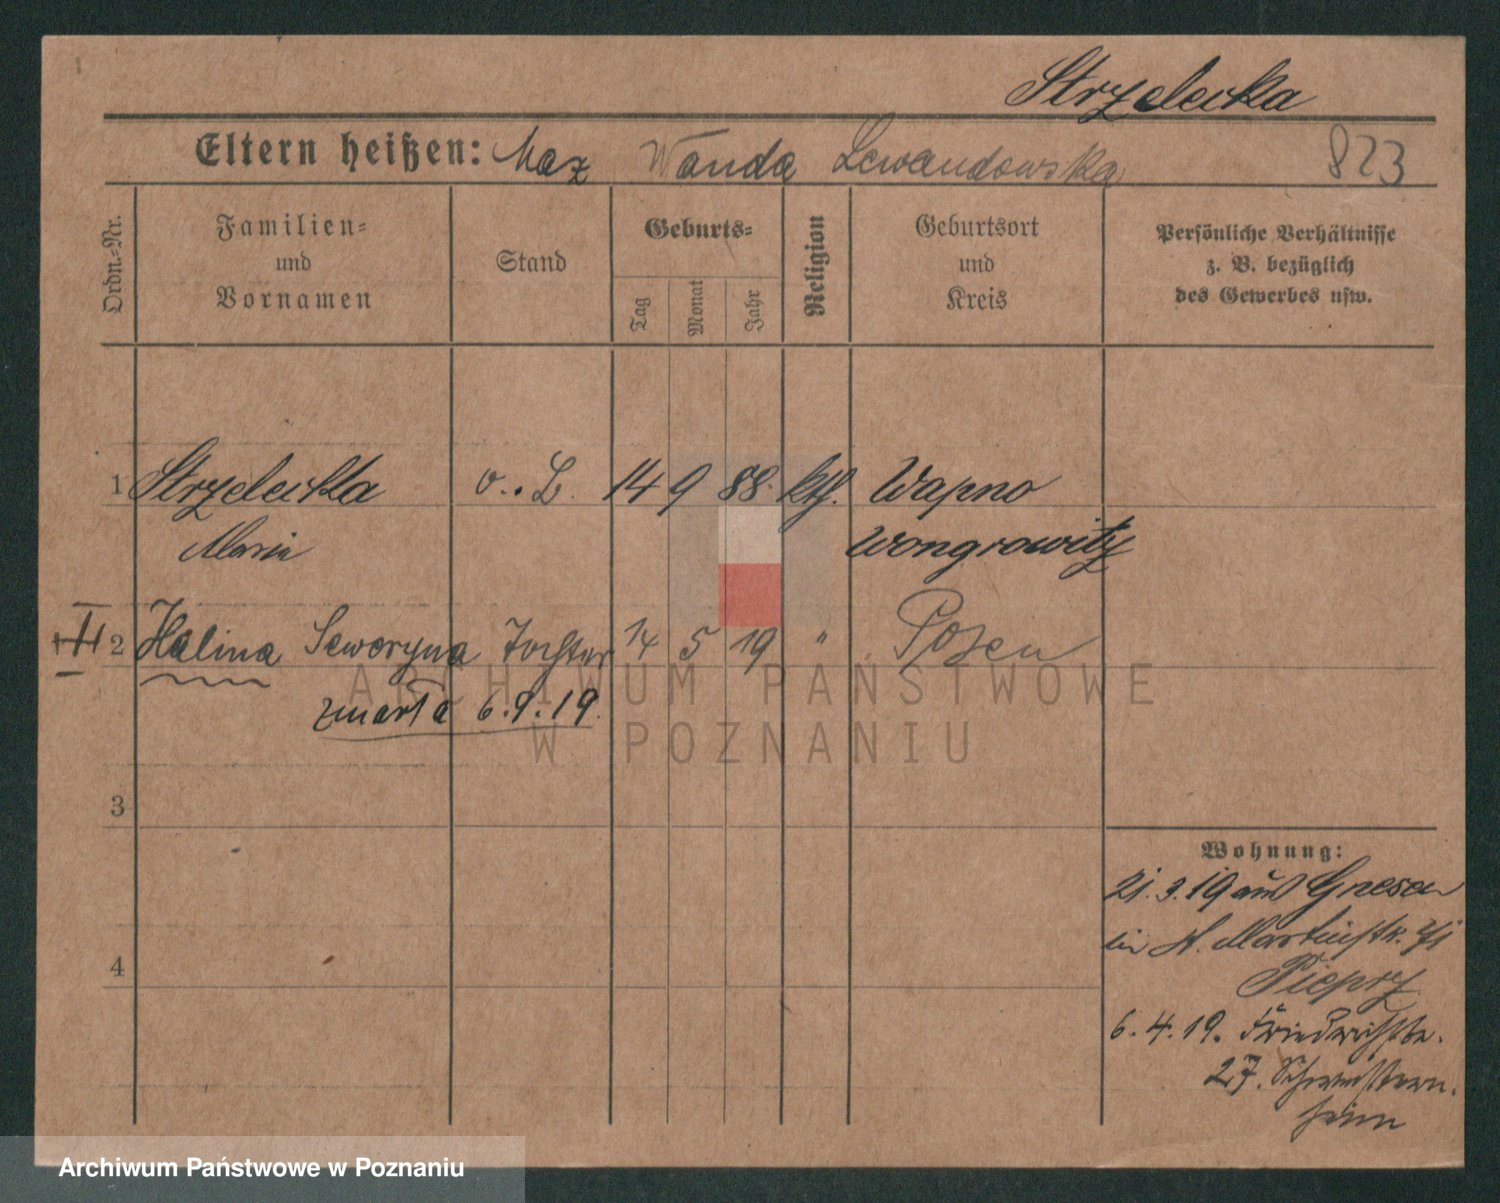 Strzelecka
Eltern heißen: Max Wanda Lewandowska 823
Ordn.-Nr.
Familien-
und
Vornamen
Stand
Geburts-
Tag
Monat
Jahr
Religion
Geburtsort
und
Kreis
Persönliche Verhältnisse
z. B. bezüglich
des Gewerbes usw.
1 Strzelecka o. B. 14 9 88. kth. Wapno
Marie Wongrowitz
2 Halina Seweryna Tochter 14 5 19 " Posen
zmarła 6.9.19.
3
4
Wohnung:
21.3.19 aus Gnesen
in St. Martinstr.
Pieprz
6.4.19. Friedrichstr.
27. Schwestern-
heim
ARCHIWUM PAŃSTWOWE
W POZNANIU
Archiwum Państwowe w Poznaniu